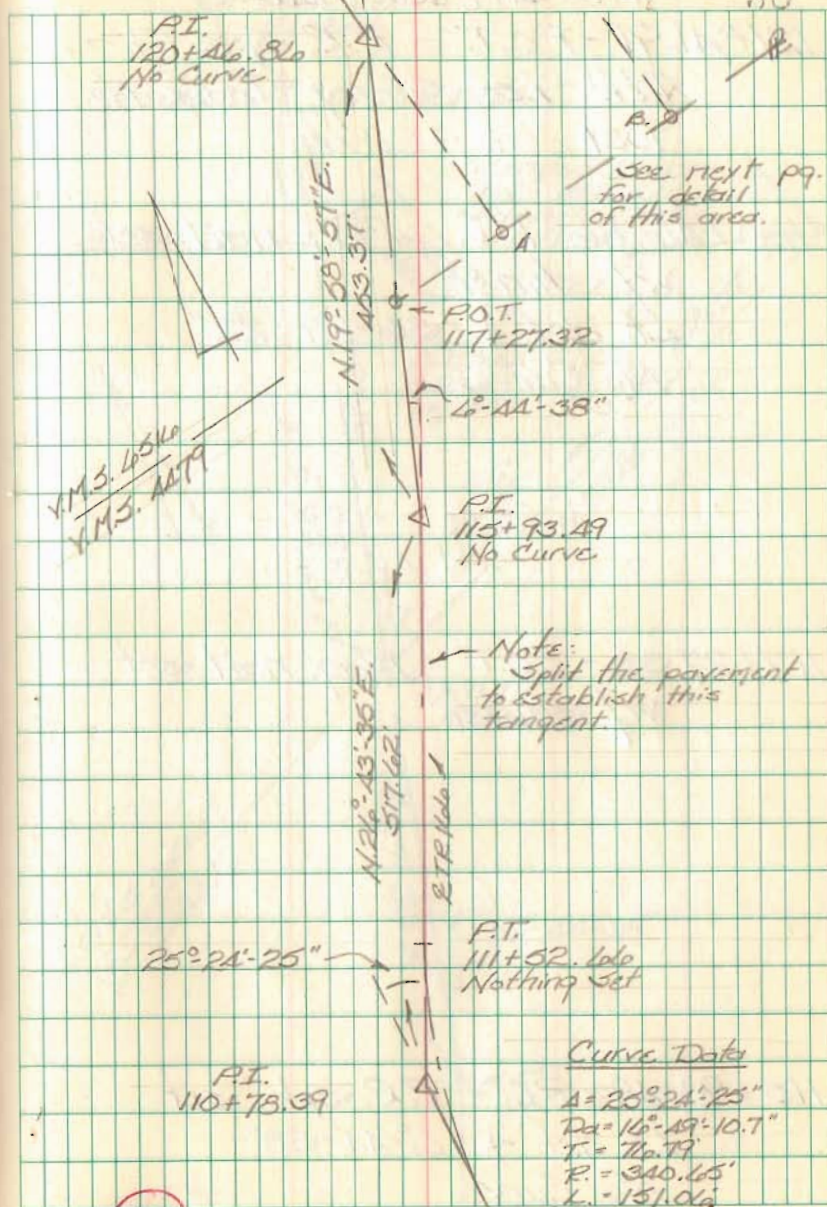 P.I.
120+46.86
No Curve
B.
See next pg.
for detail
of this area.
A
N.19°-58'-57"E.
453.37'
P.O.T.
117+27.32
6°-44'-38"
V.M.S. 6516
V.M.S. 4479
P.I.
115+93.49
No Curve
Note:
Split the pavement
to establish this
tangent.
N.26°-43'-35"E.
517.62'
℄ TR 166
25°-24'-25"
P.T.
111+52.66
Nothing Set
P.I.
110+78.39
Curve Data
Δ = 25°-24'-25"
Da = 16°-49'-10.7"
T = 76.79'
R. = 340.65'
L. = 151.06'